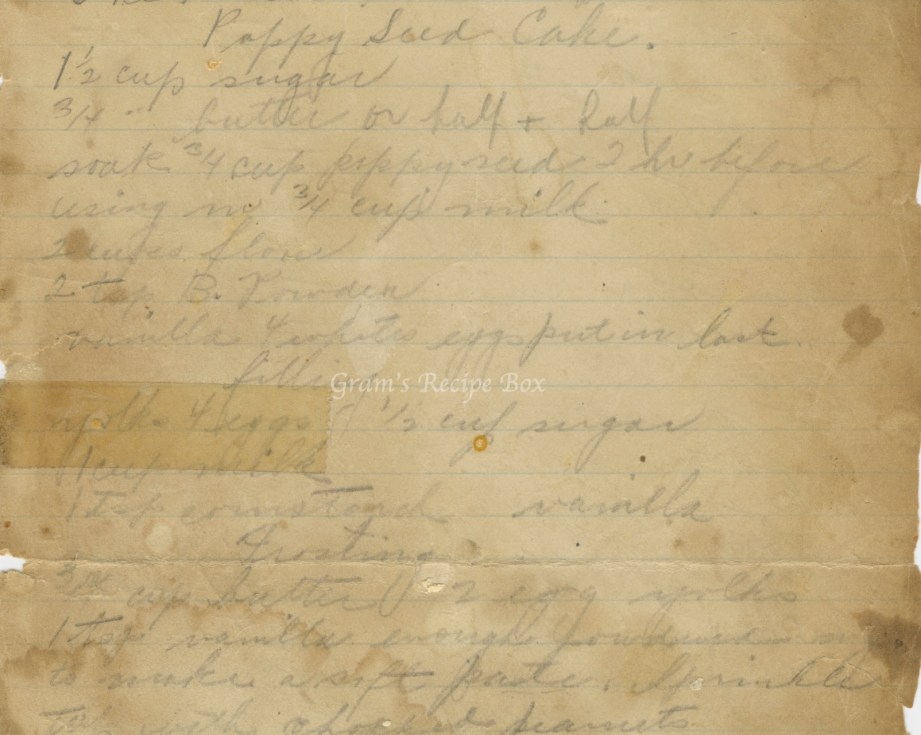 Poppy Seed Cake.
1 1/2 cup sugar
3/4 " butter or half + half
soak 3/4 cup poppy seed 2 hr before
using in 3/4 cup milk
2 cups flour
2 tsp B. Powder
vanilla 4 whites eggs put in last.
filling
Gram's Recipe Box
yolks 4 eggs 1/2 cup sugar
1 cup milk
1 tsp cornstarch vanilla
Frosting
3/4 cup butter 2 egg yolks
1 tsp vanilla enough powdered
to make a soft paste. Sprinkle
with chopped peanuts